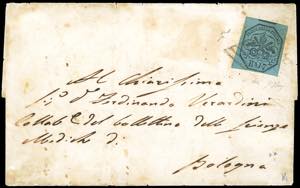 Al Chiarissimo
Sig. Dr. Ferdinando Verardini
Collab.e del bollettino delle scienze
Mediche di
Bologna
BAJ 7